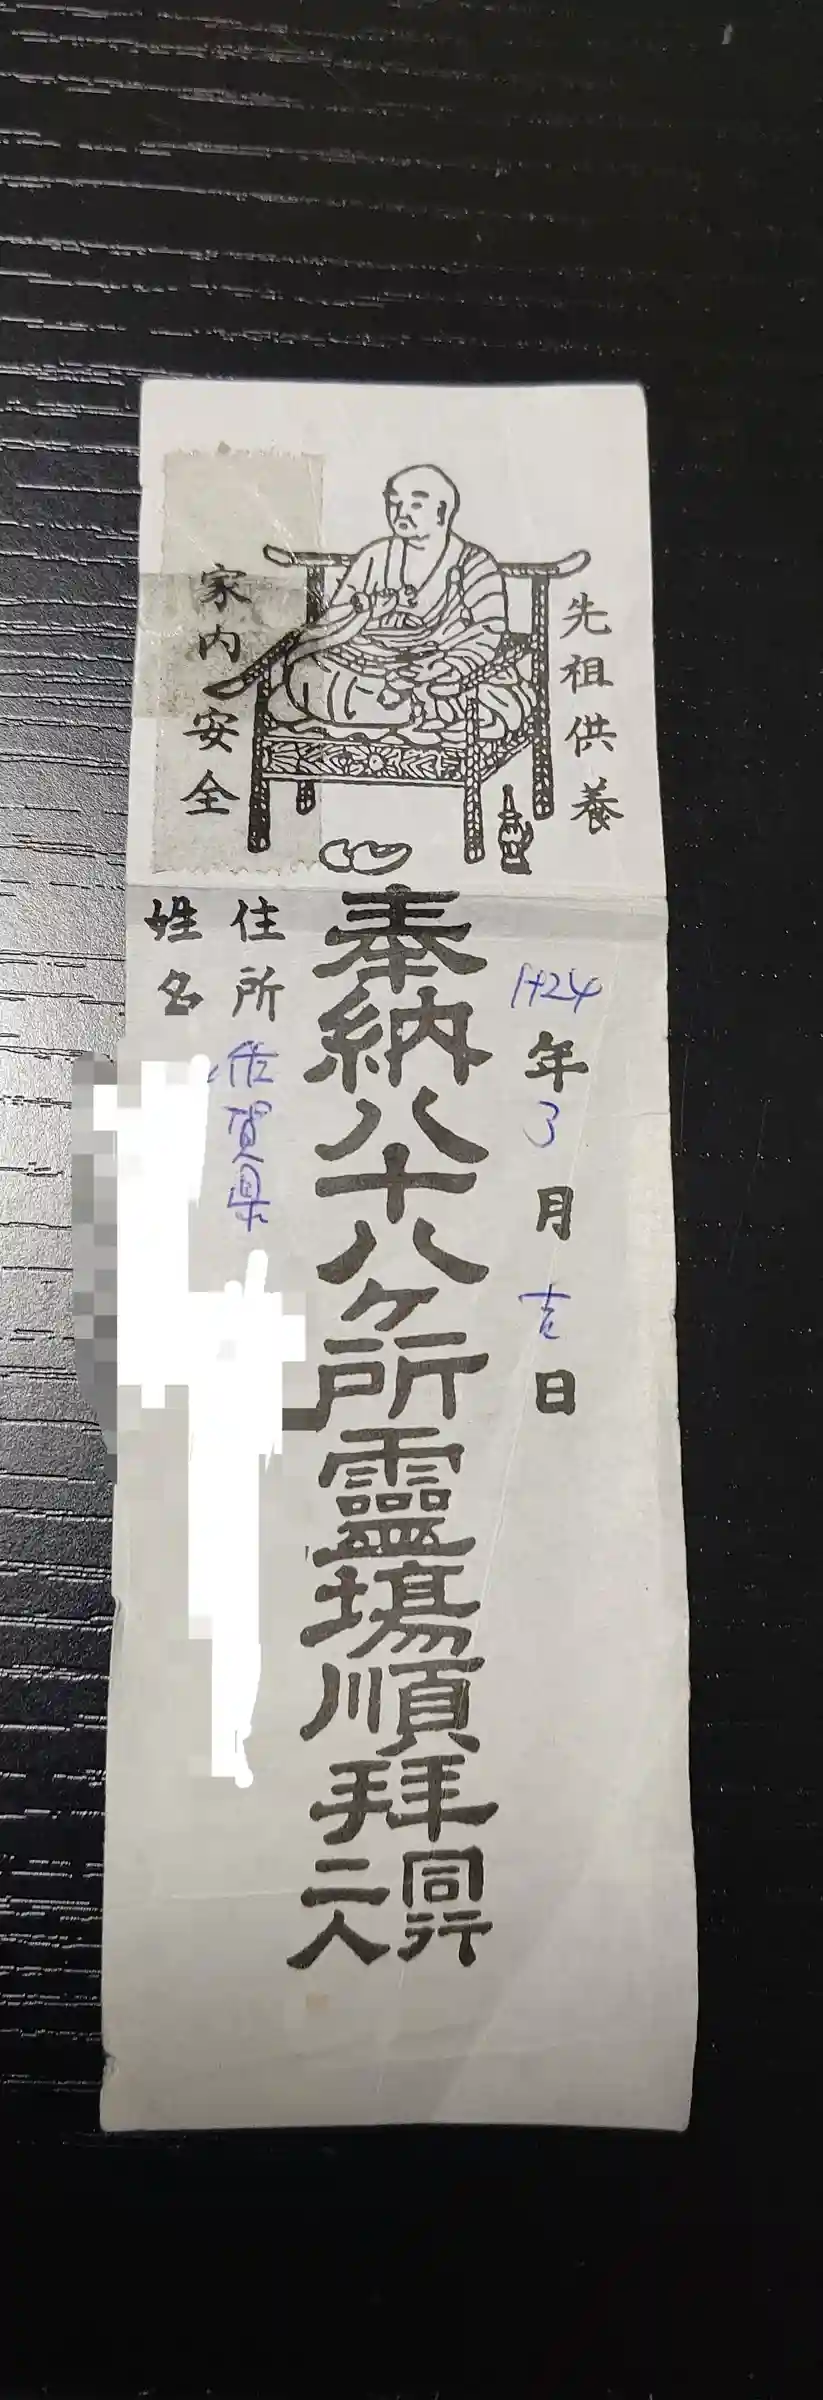 先祖供養
H24年3月吉日
奉納八十八ヶ所霊場順拝同行二人
家内安全
住所 佐賀県
姓名